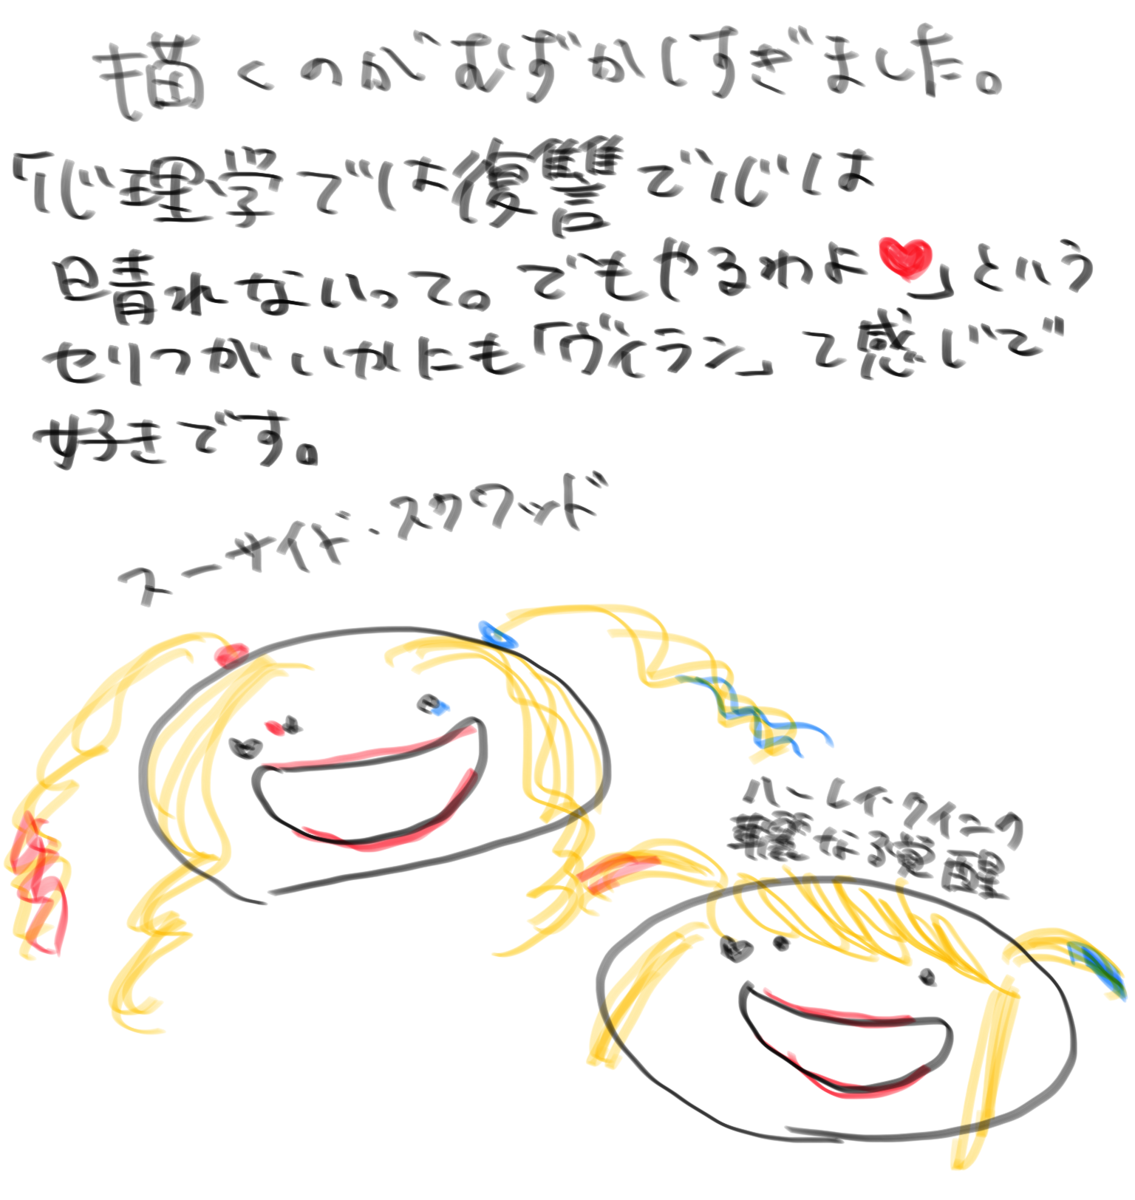 描くのがむずかしすぎました。
「心理学では復讐で心は
晴れないって。でもやるわよ♥」という
セリフがいかにも「ヴィラン」て感じで
好きです。
スーサイド・スクワッド
ハーレイ・クイーンの
華麗なる覚醒